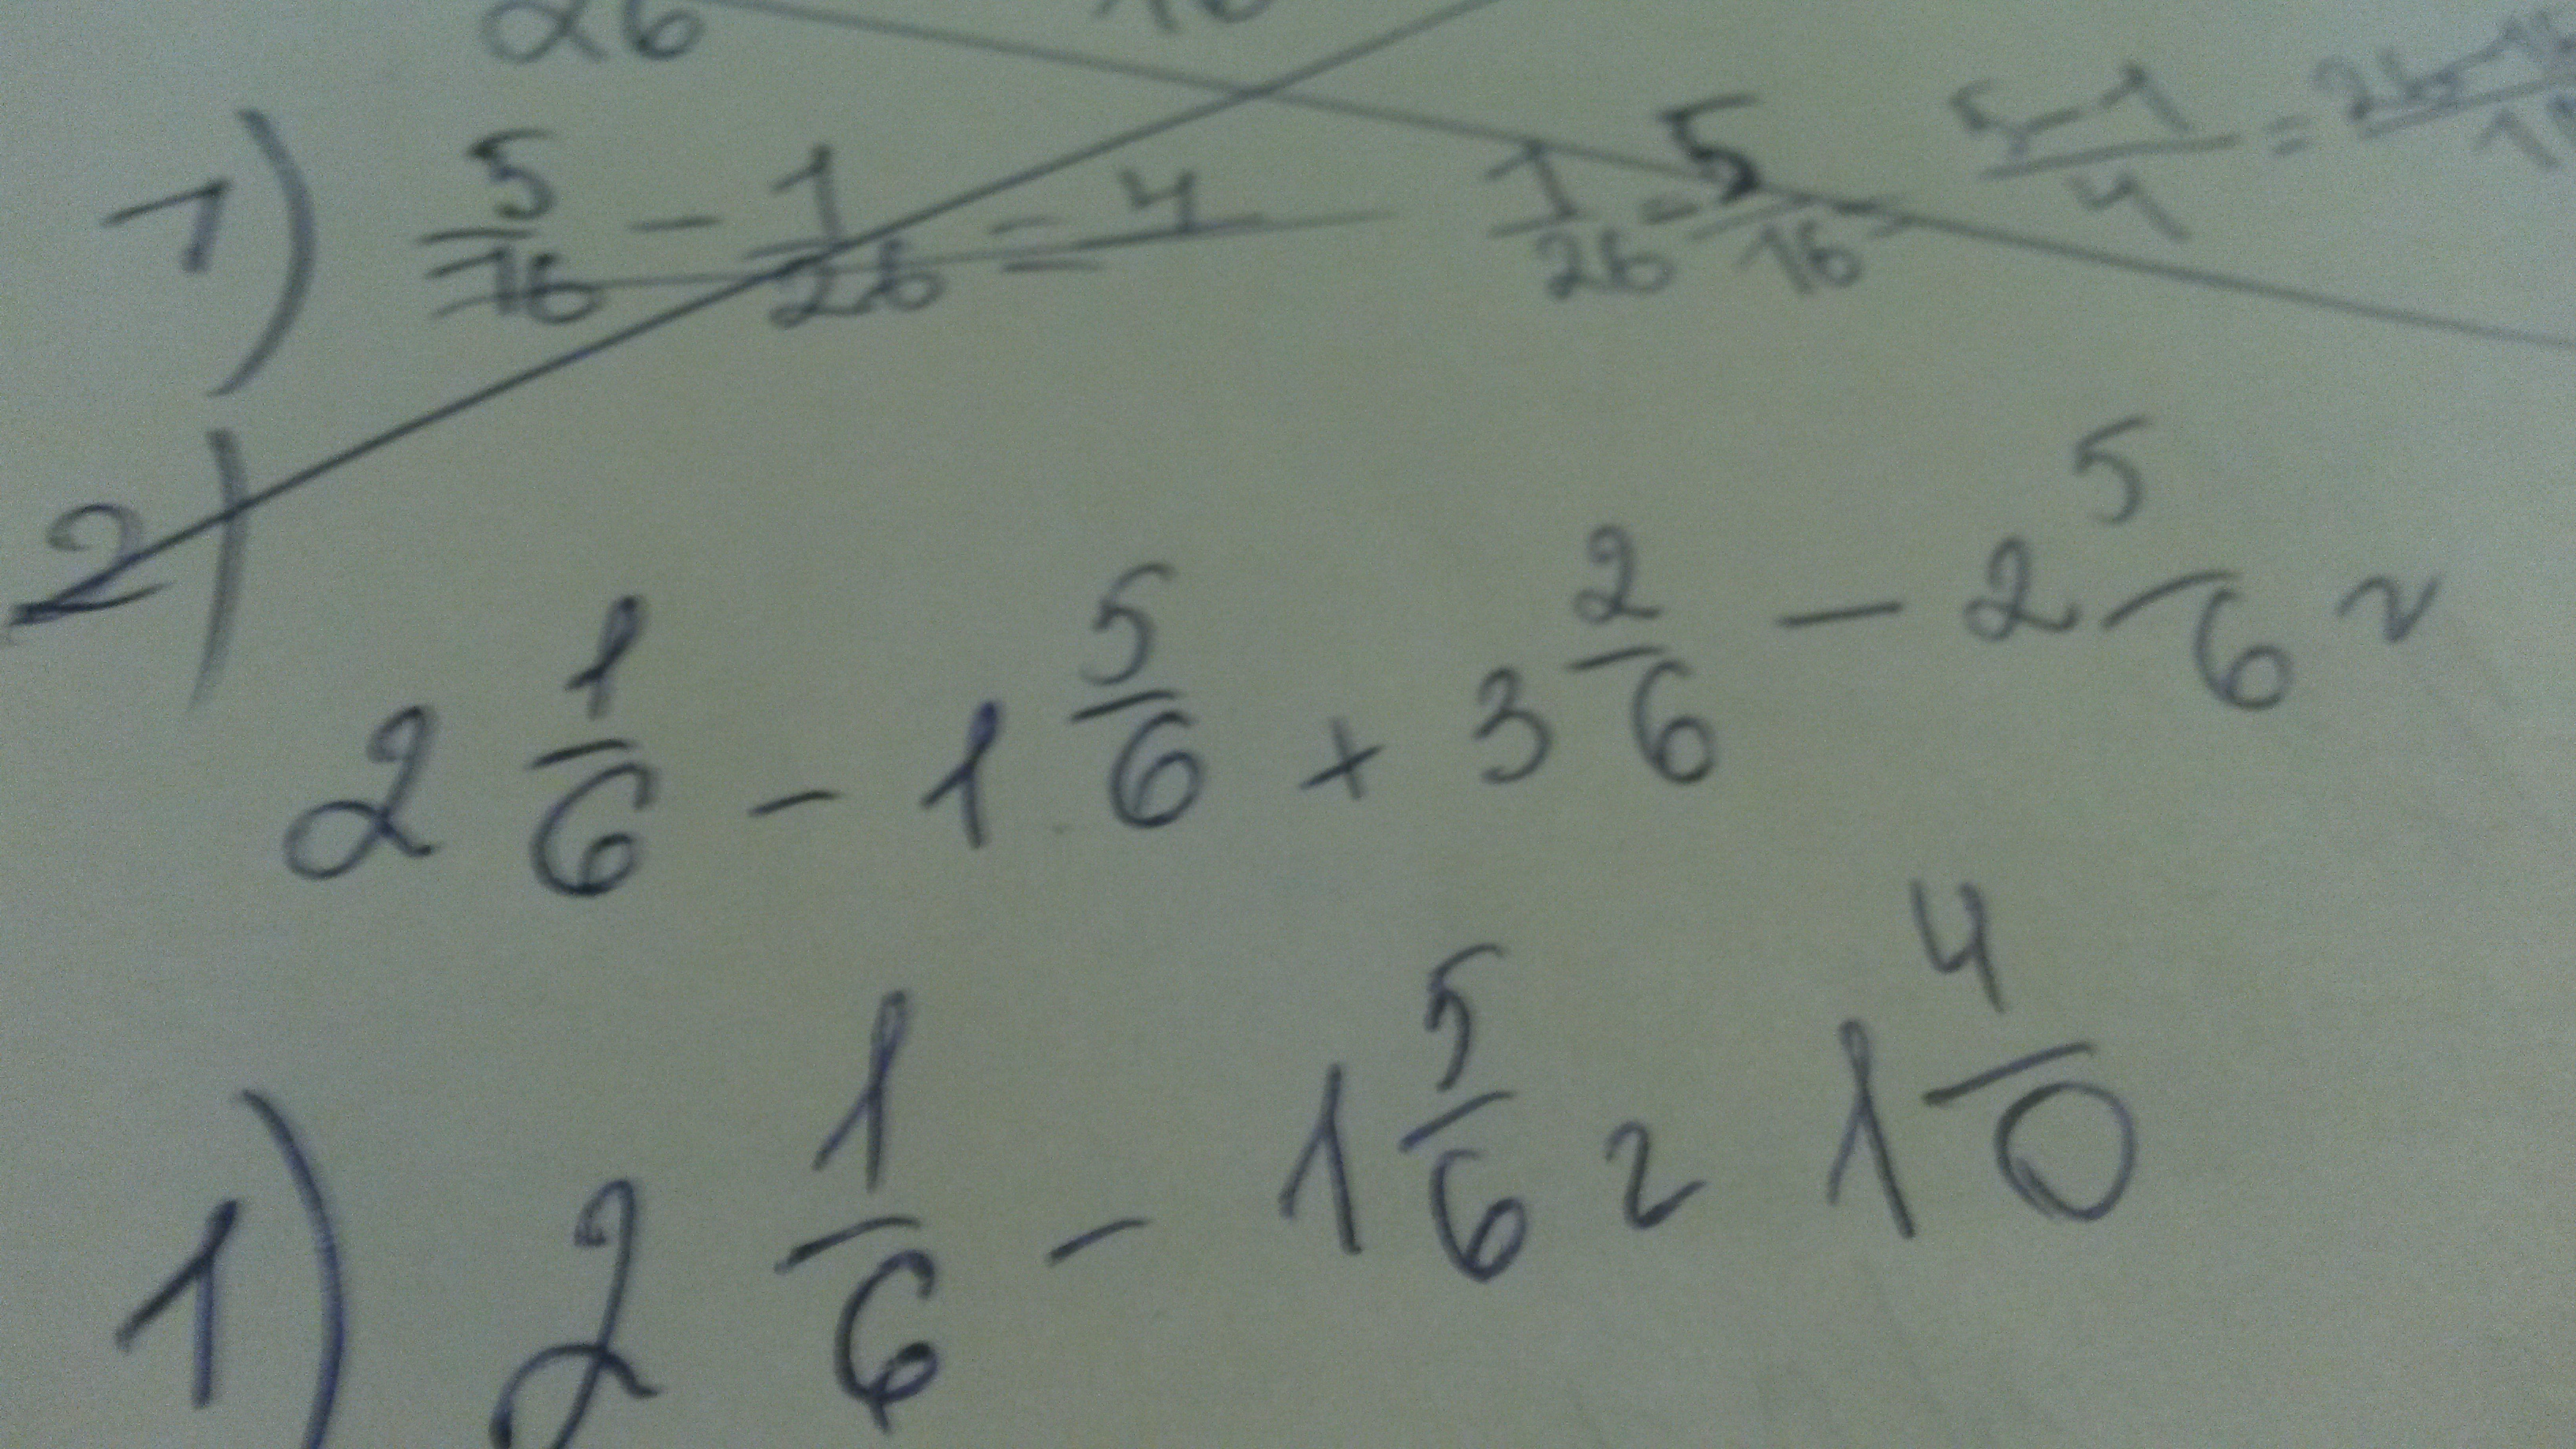 26
1) 5/16 - 1/26 = 4 1/26 - 5/16 5-1/4 =
2)
2 1/6 - 1 5/6 + 3 2/6 - 2 5/6 =
1) 2 1/6 - 1 5/6 = 1 4/0